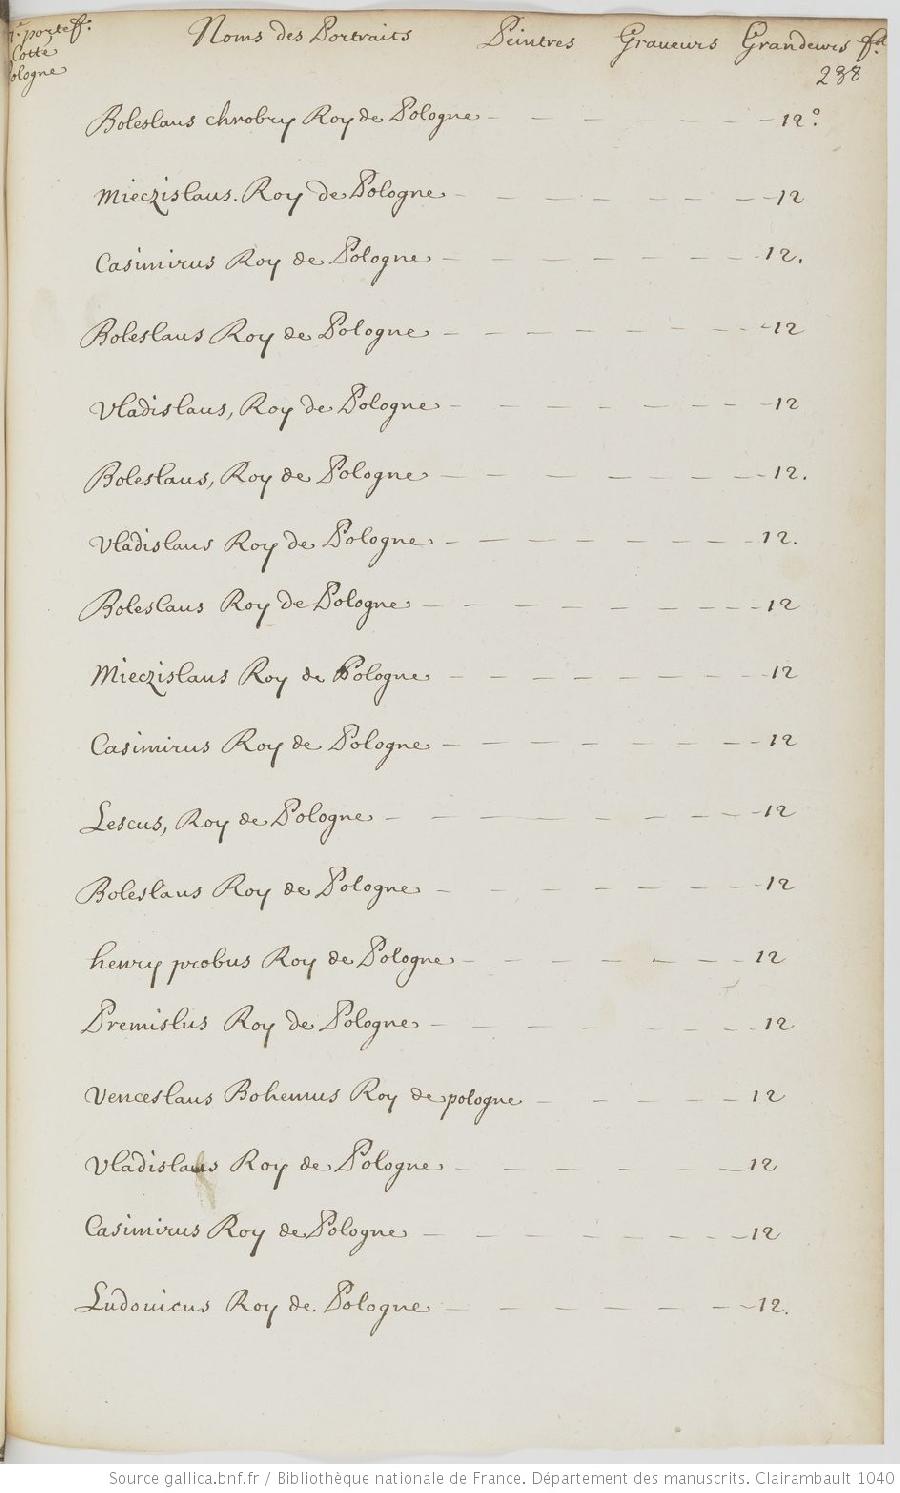 1.r portef.
Cotté
Pologne
Noms des Portraits Peintres Graueurs Grandeurs f.ol
238
Boleslaus chrobry Roy de Pologne - - - - - - 12.º
Mieczislaus. Roy de Pologne - - - - - - - 12
Casimirus Roy de Pologne - - - - - - - 12.
Boleslaus Roy de Pologne - - - - - - - 12
Vladislaus, Roy de Pologne - - - - - - - 12
Boleslaus, Roy de Pologne - - - - - - - 12.
Vladislaus Roy de Pologne. - - - - - - - 12.
Boleslaus Roy de Pologne - - - - - - - 12
Mieczislaus Roy de Pologne - - - - - - - 12
Casimirus Roy de Pologne - - - - - - - 12
Lescus, Roy de Pologne - - - - - - - 12
Boleslaus Roy de Pologne - - - - - - - 12
henry probus Roy de Pologne - - - - - - 12
Premislus Roy de Pologne - - - - - - - 12
Venceslaus Bohemus Roy de pologne - - - - - 12
Vladislaus Roy de Pologne - - - - - - 12
Casimirus Roy de Pologne - - - - - - - 12
Ludouicus Roy de. Pologne - - - - - - - 12.
Source gallica.bnf.fr / Bibliothèque nationale de France. Département des manuscrits. Clairambault 1040